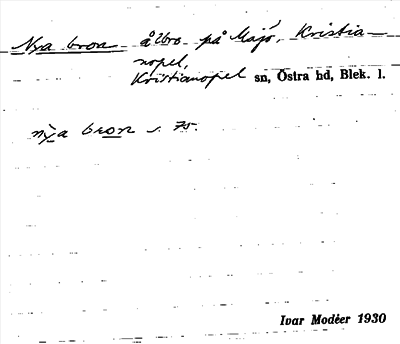 Nya bron åbro på Majö, Kristia-
nopel,
Kristianopel sn, Östra hd, Blek. l.
nỳa bron s. 75.
Ivar Modéer 1930